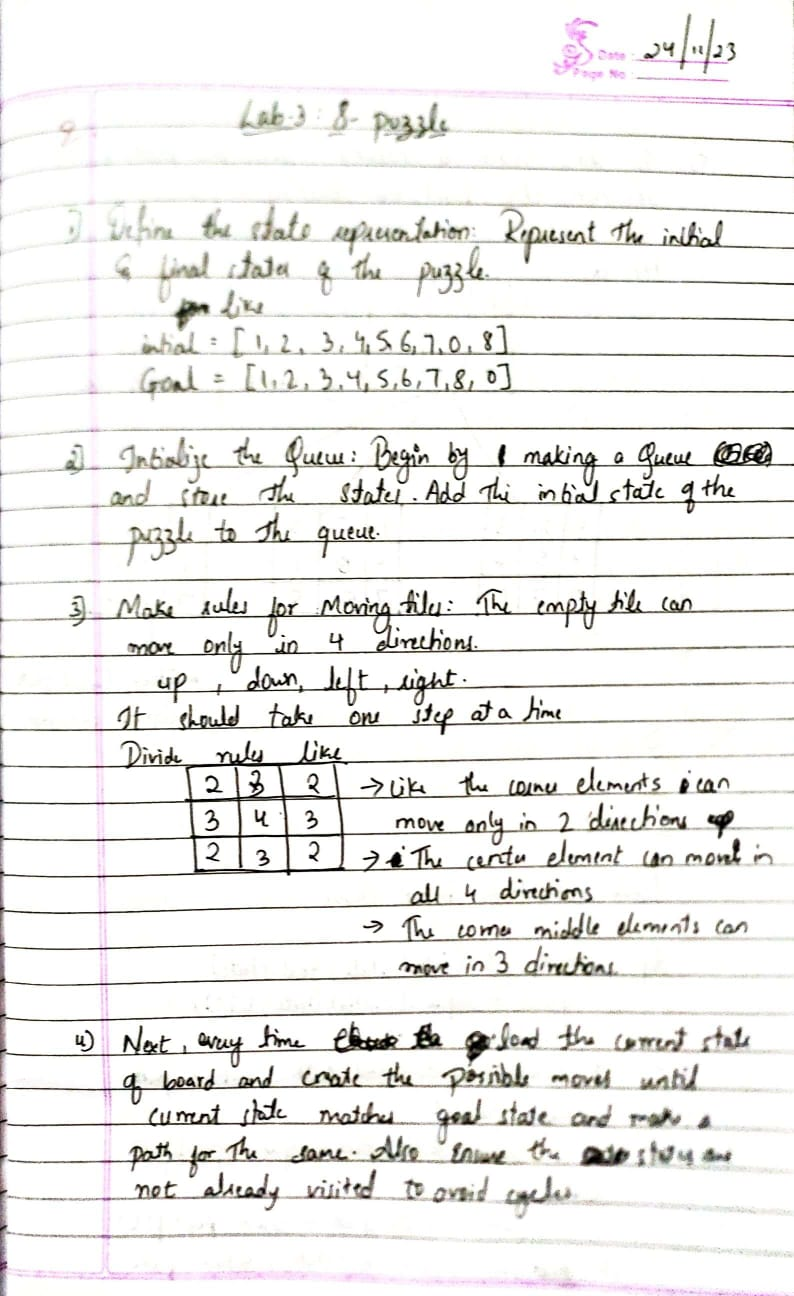 Date: 24/11/23
Page No
9
Lab-3 : 8- puzzle
1) Define the state representation: Represent The initial
& final states of the puzzle.
like
intial = [1, 2, 3, 4, 5, 6, 7, 0, 8]
Goal = [1, 2, 3, 4, 5, 6, 7, 8, 0]
2) Intialize the Queue: Begin by making a Queue
and store the states. Add The intial state of the
puzzle to the queue.
3) Make rules for Moving tiles: The empty tile can
move only in 4 directions.
up, down, left, right.
It should take one step at a time
Divide rules like
2 3 2 → Like the corner elements can
3 4 3 move only in 2 directions
2 3 2 → The center element can move in
all 4 directions
→ The corner middle elements can
move in 3 directions
4) Next, every time load the current state
of board and create the possible moves until
current state matches goal state and make a
path for The same. Also Ensure the are
not already visited to avoid cycles.